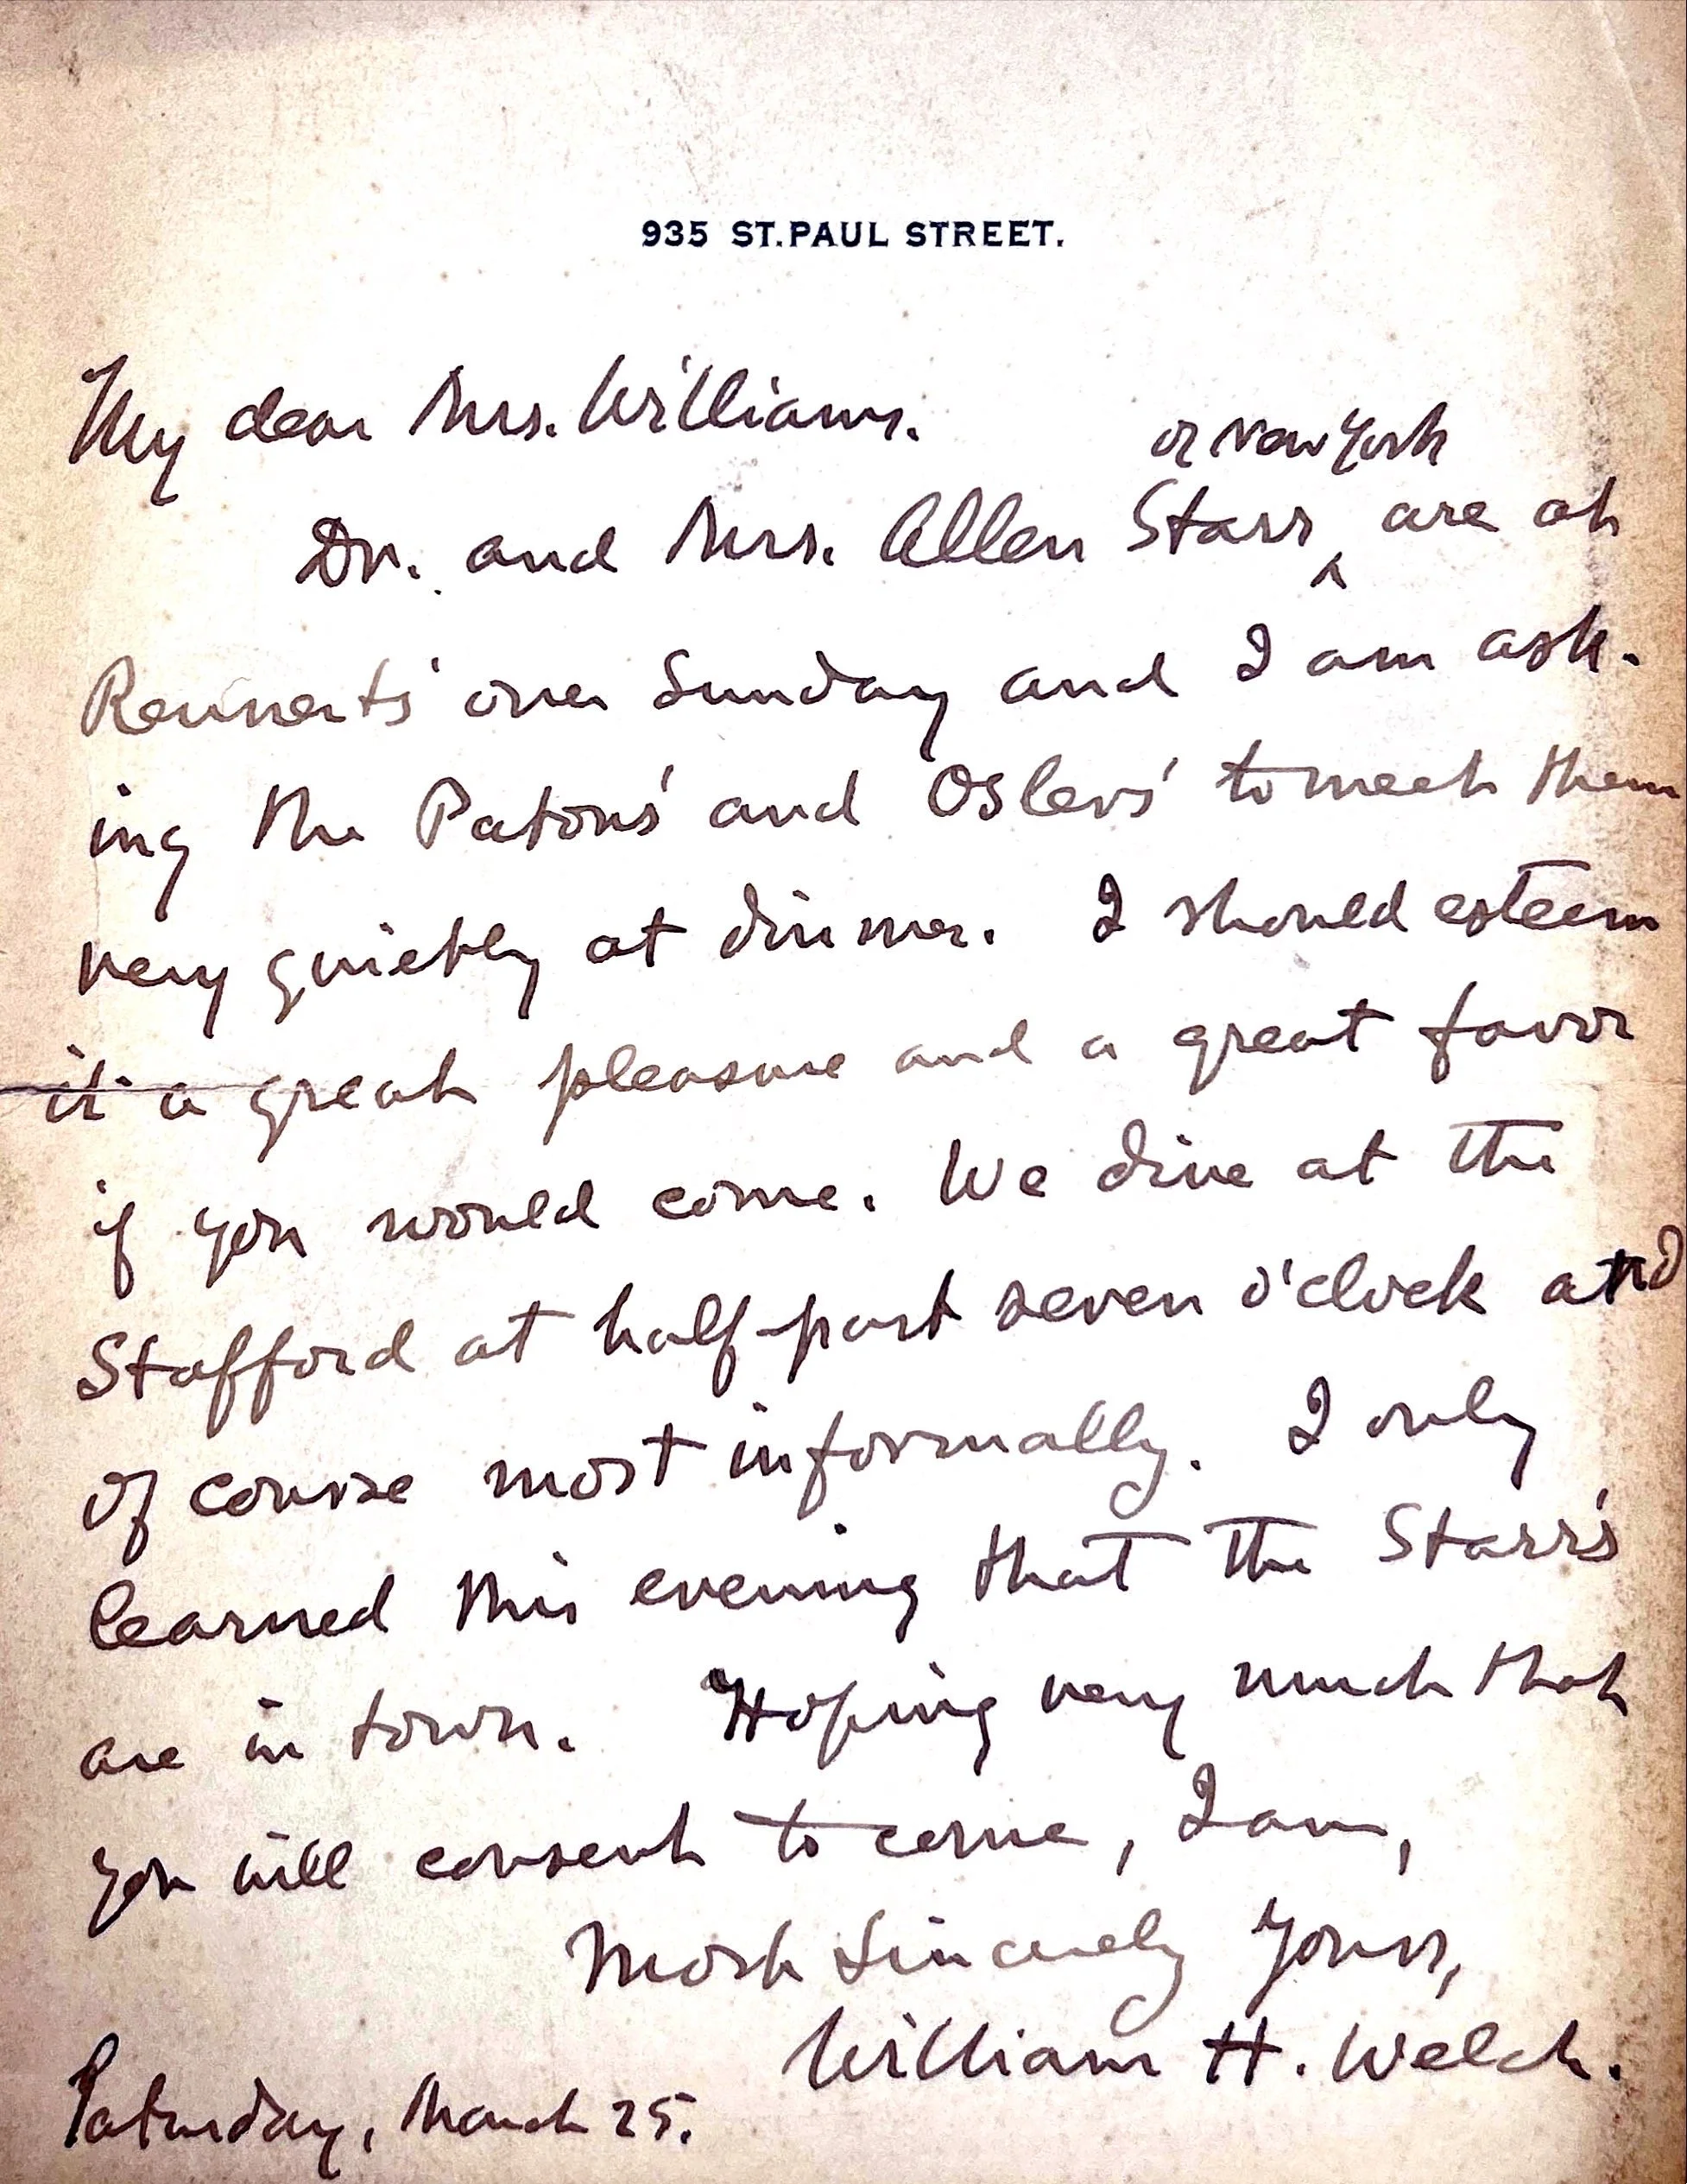 935 ST. PAUL STREET.
My dear Mrs. Williams.
of New York
Dr. and Mrs. Allen Starr ^ are at
Rennerts' over Sunday and I am ask-
ing the Patons' and Oslers' to meet them
very quietly at dinner. I should esteem
it a great pleasure and a great favor
if you would come. We dine at the
Stafford at half-past seven o'clock and
of course most informally. I only
learned this evening that the Starr's
are in town. Hoping very much that
you will consent to come, I am,
Most Sincerely Yours,
William H. Welch.
Saturday, March 25.